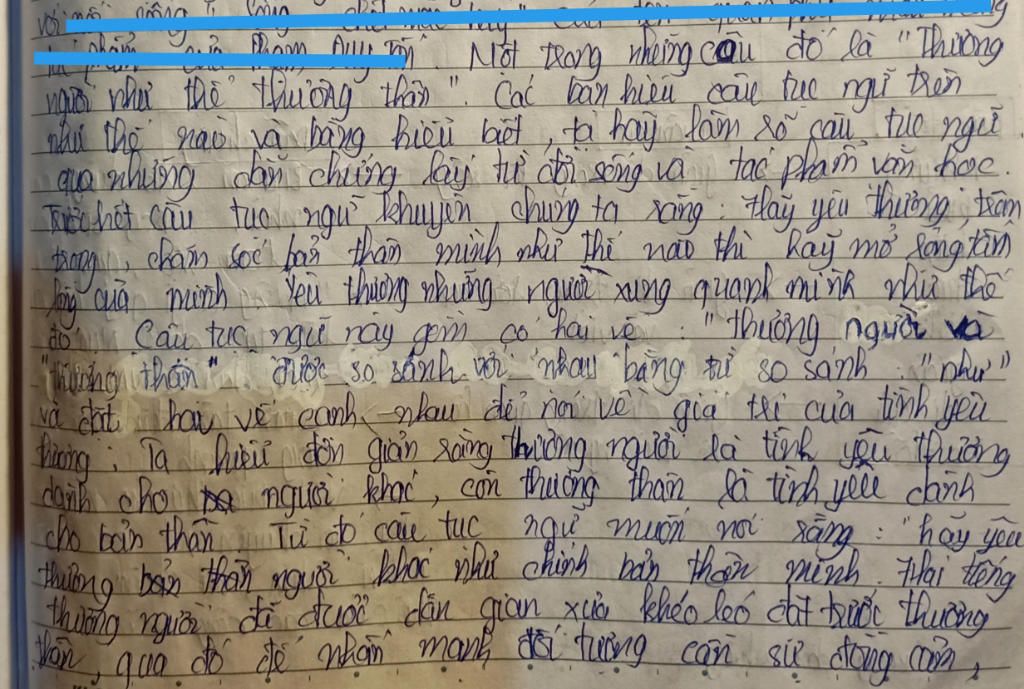 với
. Một trong những câu đó là "Thương
người như thể thương thân". Các bạn hiểu câu tục ngữ trên
như thế nào và bằng hiểu biết, ta hãy làm rõ câu tục ngữ
qua những dẫn chứng lấy từ đời sống và tác phẩm văn học.
Trước hết câu tục ngữ khuyên chúng ta rằng: Hãy yêu thương, trân
trọng, chăm sóc bản thân mình như thế nào thì hãy mở rộng tấm
lòng của mình yêu thương những người xung quanh mình như thế
đó. Câu tục ngữ này gồm có hai vế: "thương người và
"thương thân" được so sánh với nhau bằng từ so sánh "như"
và đặt hai vế cạnh nhau để nói về giá trị của tình yêu
thương. Ta hiểu đơn giản rằng thương người là tình yêu thương
dành cho người khác, còn thương thân là tình yêu dành
cho bản thân. Từ đó câu tục ngữ muốn nói rằng: "hãy yêu
thương bản thân người khác như chính bản thân mình. Hai tiếng
thương người đã được dân gian xưa khéo léo đặt trước thương
thân, qua đó để nhấn mạnh đối tượng cần sự đồng cảm,